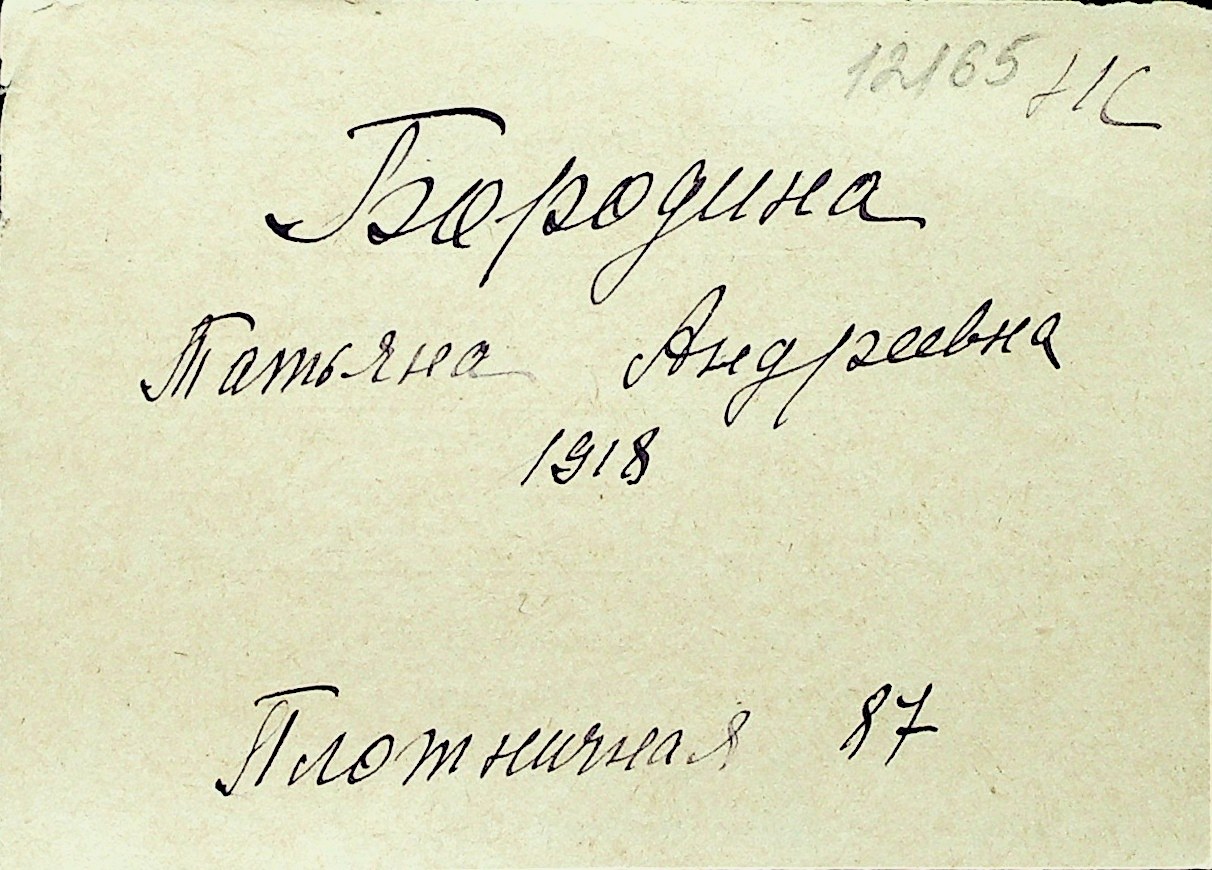 12165 НС
Бородина
Татьяна Андреевна
1918
Плотничная 87